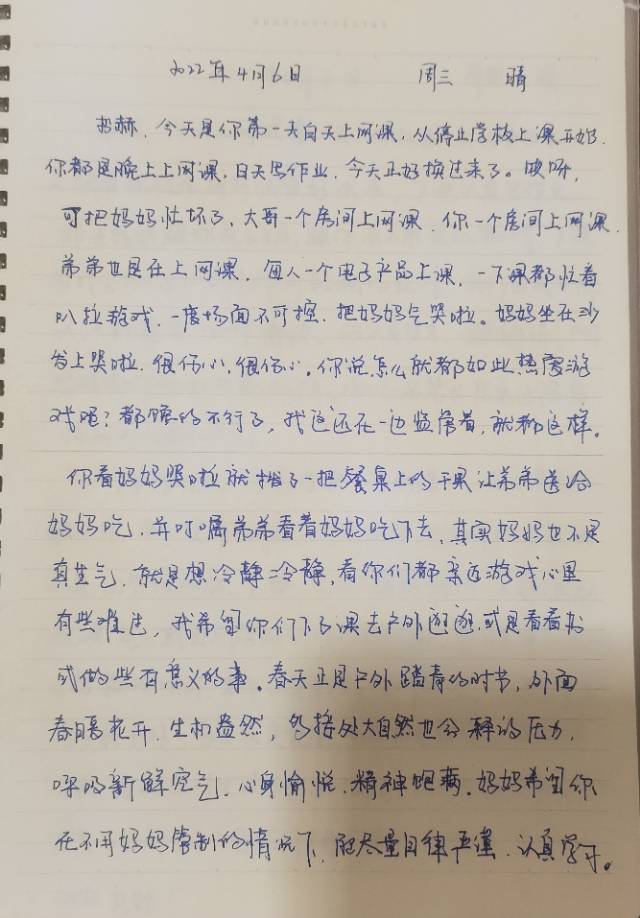 2022年4月6日 周三 晴
赫，今天是你第一天白天上网课，从停止学校上课开始，
你都是晚上上网课，白天写作业，今天正好换过来了。哎呀，
可把妈妈忙坏了，大哥一个房间上网课，你一个房间上网课，
弟弟也是在上网课，每人一个电子产品上课，一下课都忙着
叭拉游戏，一度场面不可控，把妈妈气哭啦。妈妈坐在沙
发上哭啦，很伤心，很伤心，你说怎么就都如此热度游
戏呢？都馋的不行了，我这还在一边监管着，就都这样。
你看妈妈哭啦就抓了一把餐桌上的干果让弟弟送给
妈妈吃，并叮嘱弟弟看着妈妈吃下去，其实妈妈也不是
真生气，就是想冷静冷静，看你们都亲近游戏心里
有些难过，我希望你们下了课去户外逛逛，或是看看书
或做些有意义的事。春天正是户外踏青的时节，外面
春暖花开，生机盎然，多接处大自然也会释放压力，
呼吸新鲜空气，心身愉悦，精神饱满。妈妈希望你
在不用妈妈管制的情况下，能尽量自律严谨，认真学习。